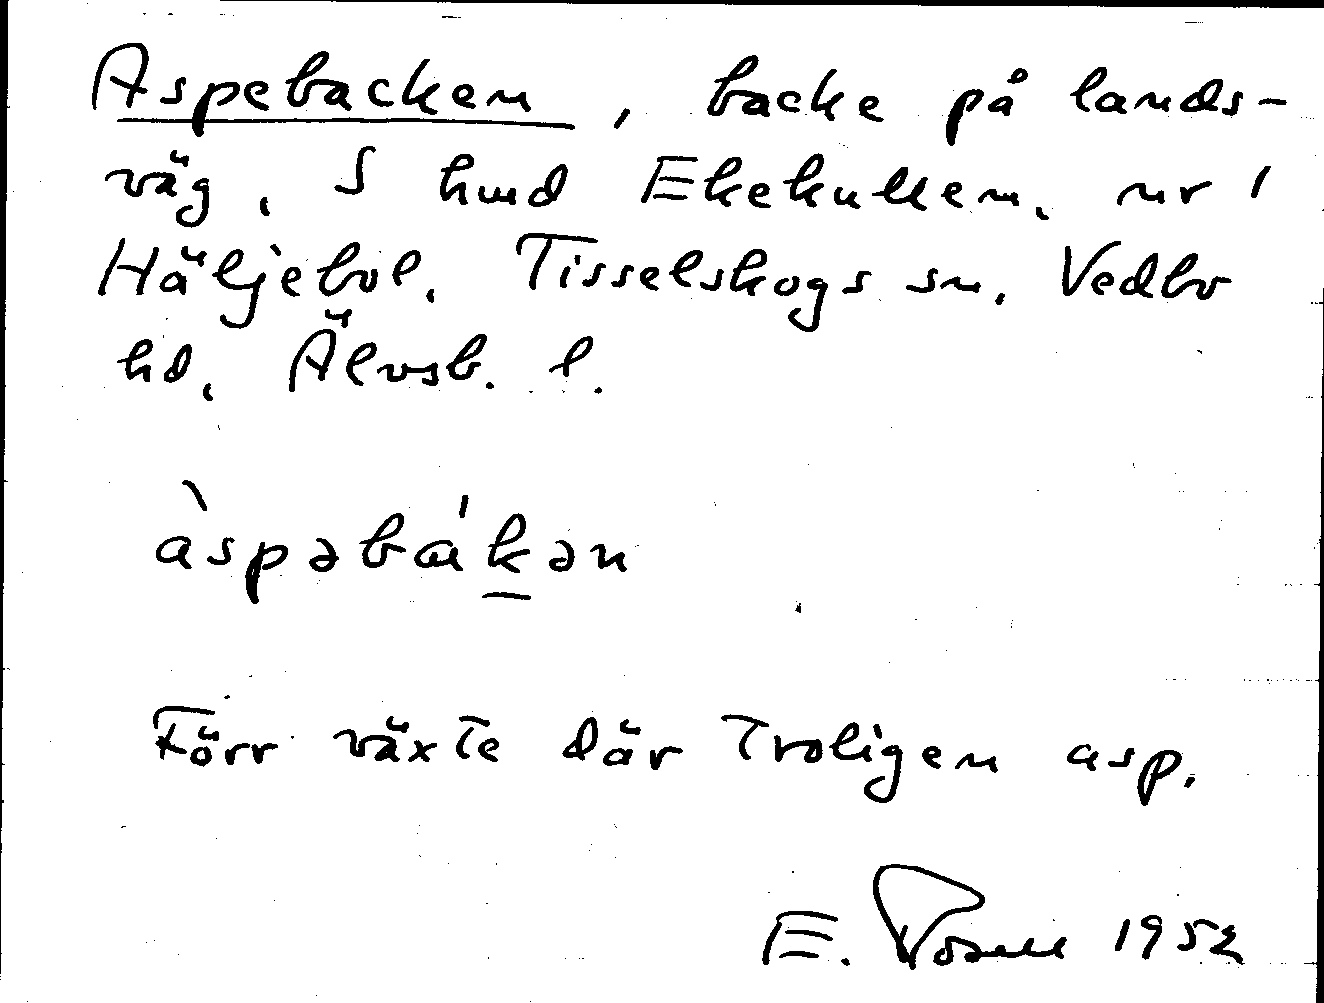 Aspebacken, backe på lands-
väg, S hmd Ekekullen, nr 1
Häljebol, Tisselskogs sn, Vedbo
hd, Älvsb. l.
àspəbákən
Förr växte där troligen asp.
E. 1952